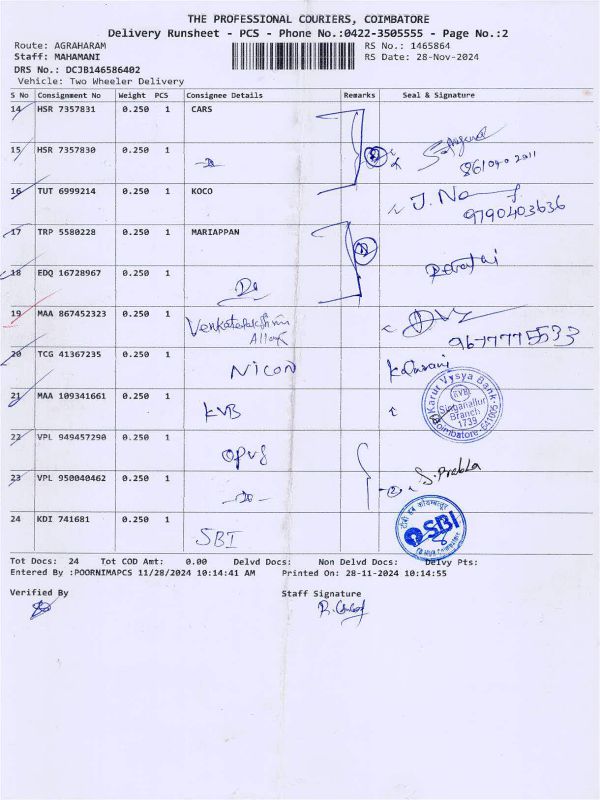 THE PROFESSIONAL COURIERS, COIMBATORE
Delivery Runsheet - PCS - Phone No.:0422-3505555 - Page No.:2
Route: AGRAHARAM RS No.: 1465864
Staff: MAHAMANI RS Date: 28-Nov-2024
DRS No.: DCJB146586402
Vehicle: Two Wheeler Delivery
S No Consignment No Weight PCS Consignee Details Remarks Seal & Signature
14 HSR 7357831 0.250 1 CARS
15 HSR 7357830 0.250 1
8610402011
16 TUT 6999214 0.250 1 KOCO J. Na
9790403636
17 TRP 5580228 0.250 1 MARIAPPAN
18 EDQ 16728967 0.250 1 Do
19 MAA 867452323 0.250 1 Venkateslakshmi
9677775533
20 TCG 41367235 0.250 1 NICON
21 MAA 109341661 0.250 1 KVB Karur Vysya Bank KVB Singanallur Branch 1739 Coimbatore-641005
22 VPL 949457290 0.250 1 opus
23 VPL 950040462 0.250 1 -Do- 2 S. Prabha
24 KDI 741681 0.250 1 SBI SBI
Tot Docs: 24 Tot COD Amt: 0.00 Delvd Docs: Non Delvd Docs: Delvy Pts:
Entered By :POORNIMAPCS 11/28/2024 10:14:41 AM Printed On: 28-11-2024 10:14:55
Verified By Staff Signature